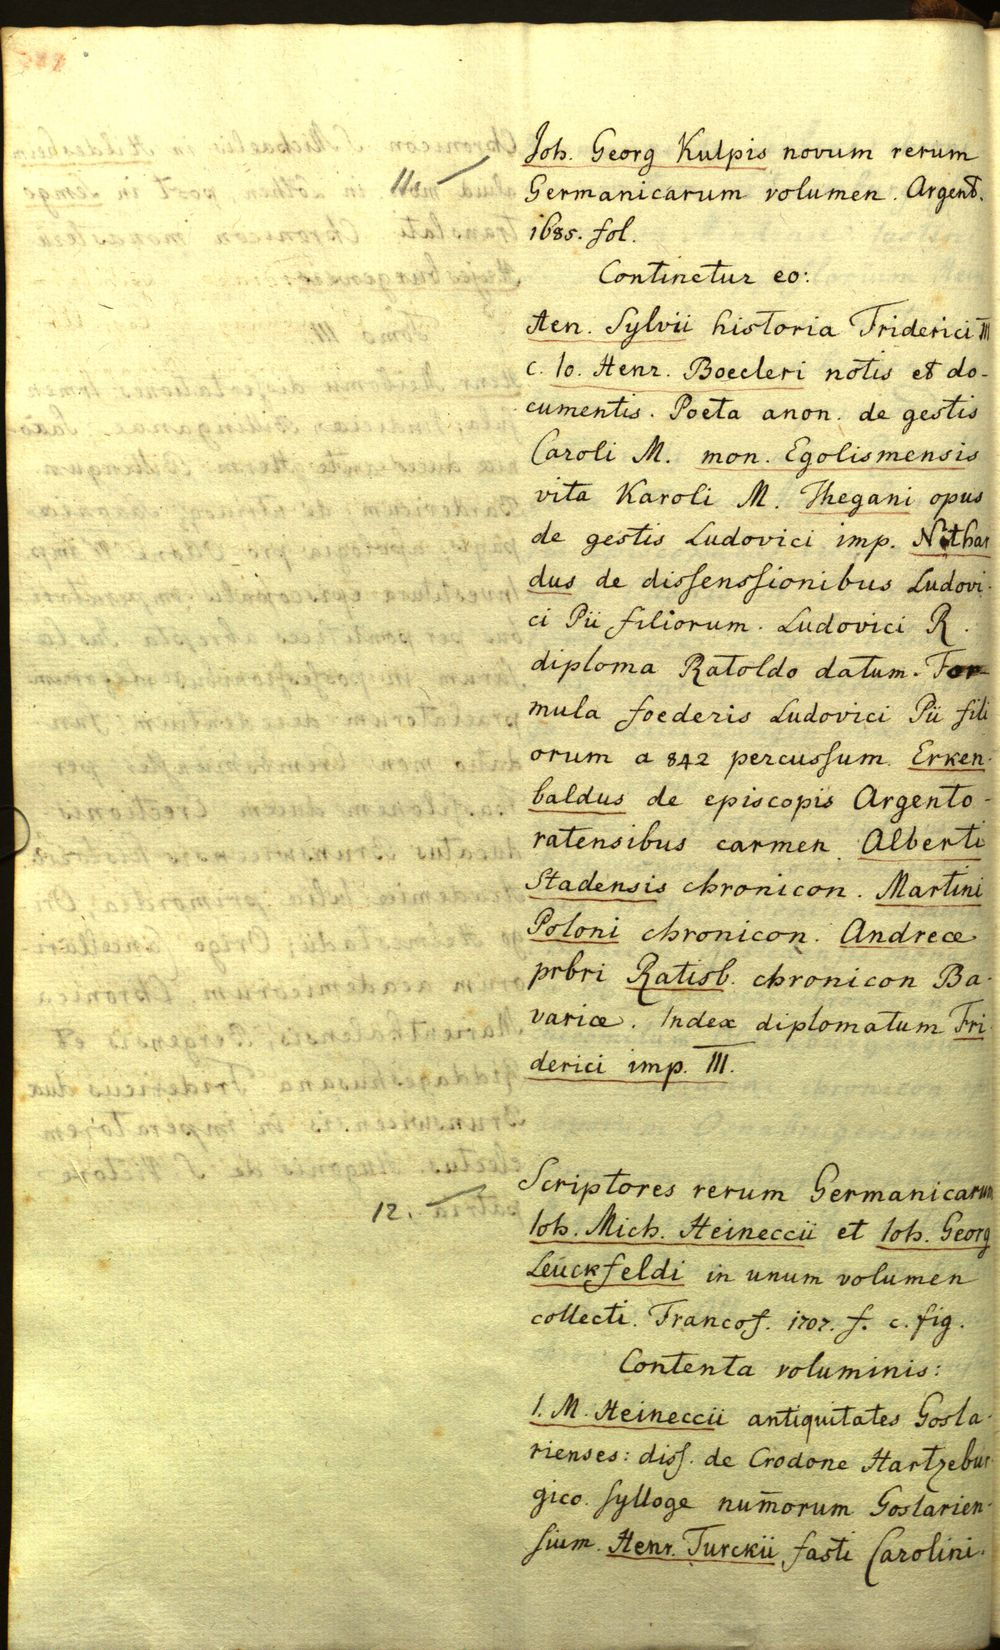 11.
Joh. Georg Kulpis novum rerum
Germanicarum volumen. Argent.
1685. fol.
Continetur eo:
Aen. Sylvii historia Friderici III
c. Io. Henr. Boecleri notis et do-
cumentis. Poeta anon. de gestis
Caroli M. mon. Egolismensis
vita Karoli M. Thegani opus
de gestis Ludovici imp. Nithar
dus de dissenssionibus Ludovi-
ci Pii filiorum. Ludovici R.
diploma Ratoldo datum. For-
mula foederis Ludovici Pii fili
orum a 842 percussum. Erken-
baldus de episcopis Argento-
ratensibus carmen Alberti
Stadensis chronicon. Martini
Poloni chronicon. Andreæ
prbri Ratisb. chronicon Ba-
variæ. Index diplomatum Fri
derici imp. III.
12.
Scriptores rerum Germanicarum
Ioh. Mich. Heineccii et Ioh. Georg
Leuckfeldi in unum volumen
collecti. Francof. 1707. f. c. fig.
Contenta voluminis:
I. M. Heineccii antiquitates Gosla-
rienses: diss. de Crodone Hartzebur
gico. Sylloge num̄orum Goslarien-
sium. Henr. Turckii fasti Carolini.